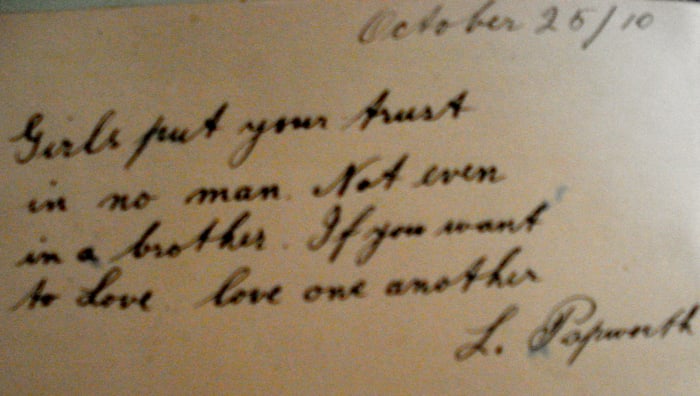 October 25/10
Girls put your trust
in no man. Not even
in a brother. If you want
to Love love one another
L. Papworth